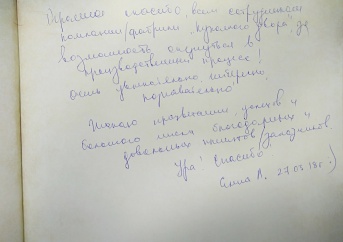 Огромное спасибо, вам сотрудникам
компании/фабрики "Кухонного двора" за
возможность окунуться в
производственный процесс!
Очень увлекательно, интересно,
познавательно
Желаю процветания, успехов и
большого числа благодарных и
довольных клиентов/заказчиков.
Ура! Спасибо
Елена А. 27.03.18г.)